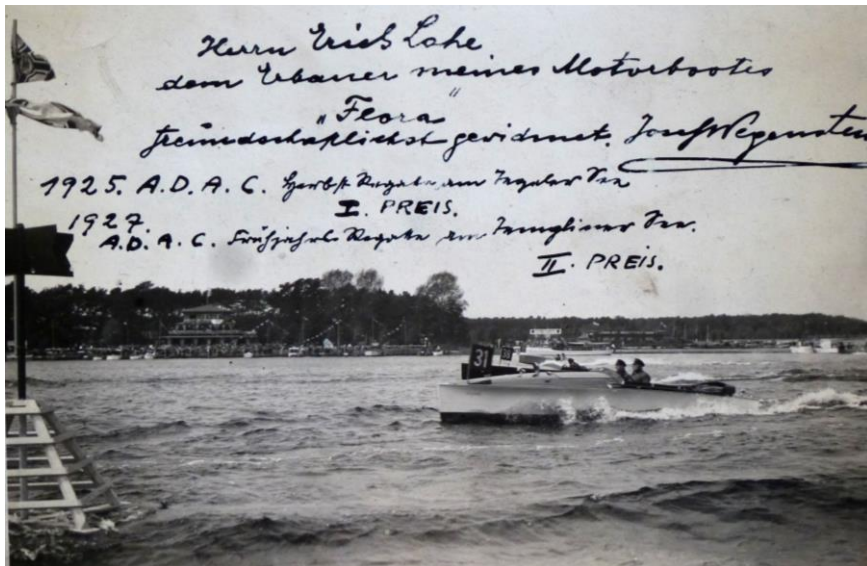 Herrn Erich Lohe
dem Erbauer meines Motorbootes
„Flora"
freundschaftlichst gewidmet. Josef Wegenstein
1925. A.D.A.C. Herbst Regatta am Tegeler See
I. PREIS.
1927.
A.D.A.C. Frühjahrs Regatta am Templiner See.
II. PREIS.
31